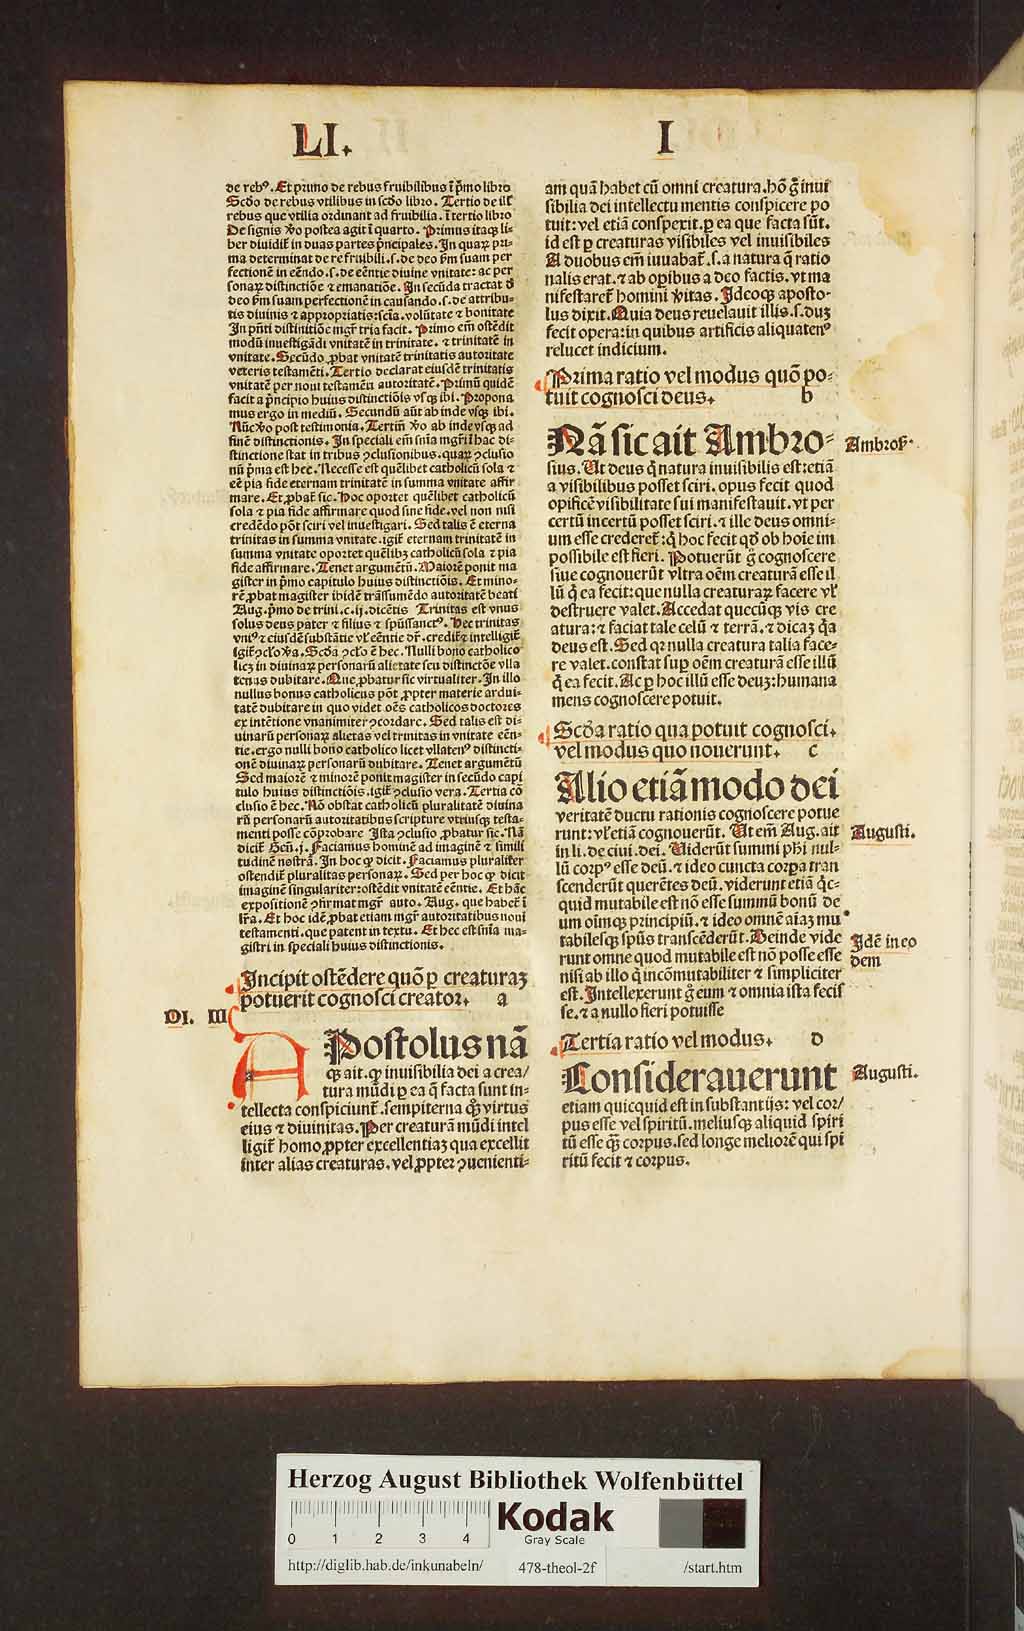 LI. I
de rebꝰ. Et primo de rebus fruibilibus ī p̄mo libro
Scd̄o de rebus vtilibus in scd̄o libro. Tertio de ill̓
rebus que vtilia ordinant ad fruibilia. ī tertio libro
De signis v̓o postea agit ī quarto. Primus itaqꝫ li-
ber diuidit̓ in duas partes p̄ncipales. In quaꝝ pri-
ma determinat de re fruibili. s. de deo ꝓm suam per
fectionē in eēndo. s. de eēntie diuine vnitate: ac per
sonaꝝ distinctiōe ⁊ emanatiōe. In secūda tractat ď
deo ꝓm suam perfectionē in causando. s. de attribu-
tis diuinis ⁊ appropriatis: scīa. volūtate ⁊ bonitate
In pn̄ti distinitiōe mgr̄ tria facit. Primo em̄ ostēdit
modū inuestigādi vnitatē in trinitate. ⁊ trinitatē in
vnitate. Secūdo ꝓbat vnitatē trinitatis autoritate
veteris testamēti. Tertio declarat eiusdē trinitatis
vnitatē per noui testamēti autoritatē. Primū quidē
facit a p̄ncipio huius distinctiōis vsqꝫ ibi. Propona
mus ergo in mediū. Secundū aūt ab inde vsqꝫ ibi.
Nūc v̓o post testimonia. Tertiū v̓o ab inde vsqꝫ ad
finē distinctionis. In speciali em̄ snīa mgr̄i ī hac di-
stinctione stat in tribus ꝯclusionibus. quaꝝ ꝯclusio
nū p̄ma est hec. Necesse est quēlibet catholicū sola ⁊
eē pia fide eternam trinitatē in summa vnitate affir
mare. Et ꝓbat̓ sic. Hoc oportet quēlibet catholicū
sola ⁊ pia fide affirmare quod sine fide. vel non nisi
credēdo pōt sciri vel inuestigari. Sed talis ē eterna
trinitas in summa vnitate. igit̓ eternam trinitatē in
summa vnitate oportet quēlibꝫ catholicū sola ⁊ pia
fide affirmare. Tenet argumētū. Maiorē ponit ma
gister in p̄mo capitulo huius distinctiōis. Et mino-
rē ꝓbat magister ibidē trāssumēdo autoritatē beati
Aug. p̄mo de trini. c. ij. dicētis Trinitas est vnus
solus deus pater ⁊ filius ⁊ spūssanctꝰ. Hec trinitas
vniꝰ ⁊ eiusdē substātie vl̓ eēntie dr̄. credit̓ ⁊ intelligit̓
igit̓ ꝯclo v̓a. Scd̄a ꝯclo ē hec. Nulli bono catholico
licꝫ in diuinaꝝ personarū alietate seu distinctōe vlla
tenus dubitare. Que ꝓbatur sic virtualiter. In illo
nullus bonus catholicus pōt ꝓpter materie ardui-
tatē dubitare in quo videt oēs catholicos doctores
ex intētione vnanimiter ꝯcordare. Sed talis est di-
uinarū personaꝝ alietas vel trinitas in vnitate eēn-
tie. ergo nulli bono catholico licet vllatenꝰ distincti-
onē diuinaꝝ personarū dubitare. Tenet argumētū
Sed maiorē ⁊ minorē ponit magister in secūdo capi
tulo huius distinctiōis. igit̓ ꝯclusio vera. Tertia cō
clusio ē hec. Nō obstat catholicū pluralitatē diuina
rū personarū autoritatibus scripture vtriusqꝫ testa-
menti posse cōprobare Ista ꝯclusio ꝓbatur sic. Nā
dicit̓ Gen̄. j. Faciamus hominē ad imaginē ⁊ simili
tudinē nostrā. In hoc ꝙ dicit. Faciamus pluralit̓er
ostendit̓ pluralitas personaꝝ. Sed per hoc ꝙ dicit
imaginē singulariter: ostēdit vnitatē eēntie. Et hāc
expositionē ꝯfirmat mgr̄ auto. Aug. que habet̓ ī
lr̄a. Et hoc idē ꝓbat etiam mgr̄ autoritatibus noui
testamenti. que patent in textu. Et hec est snīa ma-
gistri in speciali huius distinctionis.
Incipit ostēdere quō ꝑ creaturaꝫ
potuerit cognosci creator. a
DI. III
Apostolus nā
qꝫ ait. ꝙ inuisibilia dei a crea/
tura mūdi ꝑ ea q̄ facta sunt in-
tellecta conspiciunt̓. sempiterna qꝫ virtus
eius ⁊ diuinitas. Per creaturā mūdi intel
ligit̓ homo ꝓpter excellentiaꝫ qua excellit
inter alias creaturas. vel ꝓpter ꝯuenienti-
am quā habet cū omni creatura. hō g̊ inui
sibilia dei intellectu mentis conspicere po
tuit: vel etiā conspexit. ꝑ ea que facta sūt.
id est ꝑ creaturas visibiles vel inuisibiles
A duobus em̄ iuuabat̓. s. a natura q̄ ratio
nalis erat. ⁊ ab oꝑibus a deo factis. vt ma
nifestaret̓ homini v̓itas. Ideoqꝫ aposto-
lus dixit. Quia deus reuelauit illis. s. duꝫ
fecit opera: in quibus artificis aliquatenꝰ
relucet indicium.
Prima ratio vel modus quō po-
tuit cognosci deus. b
Nā sic ait Ambro- Ambros̓.
sius. Ut deus q̄ natura inuisibilis est: etiā
a visibilibus posset sciri. opus fecit quod
opificē visibilitate sui manifestauit. vt per
certū incertū posset sciri. ⁊ ille deus omni-
um esse crederet̓: q̄ hoc fecit qd̓ ab hoīe im
possibile est fieri. Potuerūt g̊ cognoscere
siue cognouerūt vltra oēm creaturā esse il
lū q̄ ea fecit: que nulla creaturaꝝ facere vl̓
destruere valet. Accedat quecūqꝫ vis cre
atura: ⁊ faciat tale celū ⁊ terrā. ⁊ dicaꝫ q̄a
deus est. Sed qꝛ nulla creatura talia face-
re valet. constat suꝑ oēm creaturā esse illū
q̄ ea fecit. Ac ꝑ hoc illū esse deuꝫ: humana
mens cognoscere potuit.
Scd̄a ratio qua potuit cognosci.
vel modus quo nouerunt. c
Alio etiā modo dei
veritatē ductu rationis cognoscere potue
runt: vl̓ etiā cognouerūt. Ut em̄ Aug. ait Augusti.
in li. de ciui. dei. Viderūt summi ph̄i nul-
lū corpꝰ esse deū. ⁊ ideo cuncta corꝑa tran
scenderūt querētes deū. viderunt etiā q̄c-
quid mutabile est nō esse summū bonū de
um oīmqꝫ principiū. ⁊ ideo omnē aīaꝫ mu
tabilesqꝫ spūs transcēderūt. Deinde vide Idē in eo
runt omne quod mutabile est nō posse esse dem
nisi ab illo q̄ incōmutabiliter ⁊ simpliciter
est. Intellexerunt g̊ eum ⁊ omnia ista fecis
se. ⁊ a nullo fieri potuisse
Tertia ratio vel modus. d
Considerauerunt Augusti.
etiam quicquid est in substantijs: vel cor/
pus esse vel spiritū. meliusqꝫ aliquid spiri
tū esse qꝫ corpus. sed longe meliorē qui spi
ritū fecit ⁊ corpus.
Herzog August Bibliothek Wolfenbüttel
0 1 2 3 4
Kodak
Gray Scale
http://diglib.hab.de/inkunabeln/ 478-theol-2f /start.htm